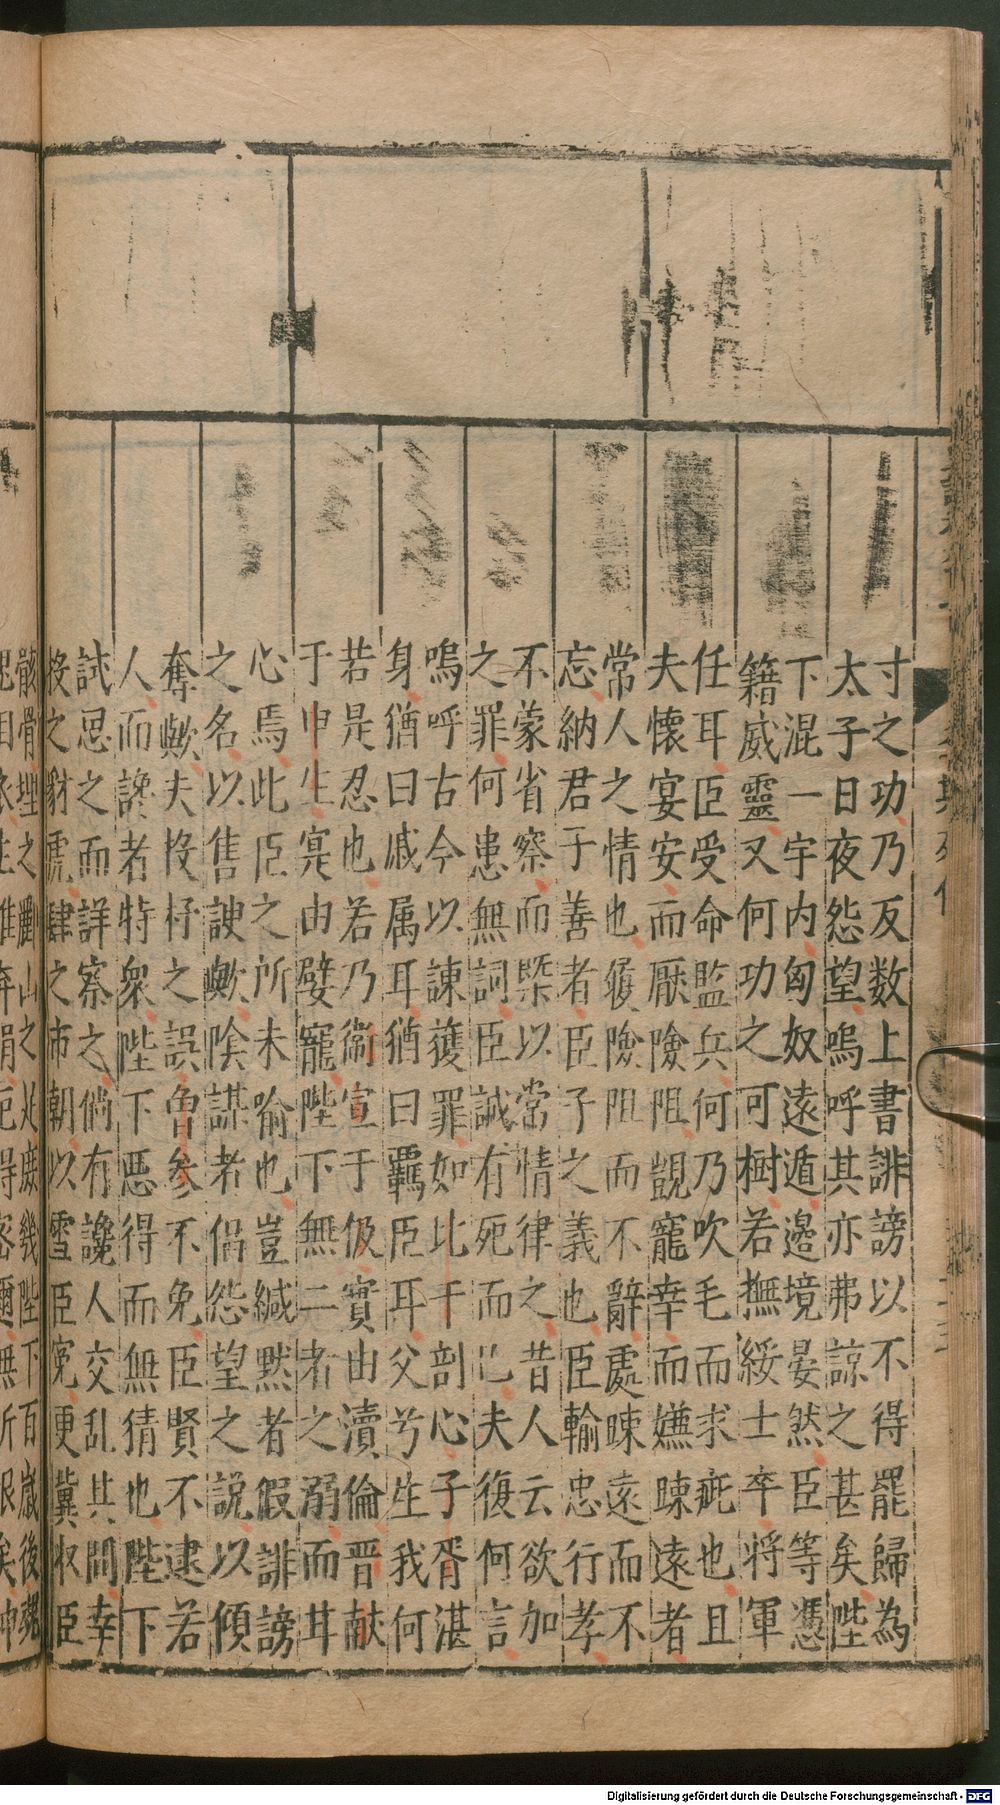 寸之功乃反数上書誹謗以不得罷歸為
太子日夜怨望嗚呼其亦弗諒之甚矣陛
下混一宇内匈奴遠遁邉境晏然臣等憑
籍威靈又何功之可樹若撫綏士卒將軍
任耳臣受命監兵何乃吹毛而求疵也且
夫懷宴安而厭險阻覬寵幸而嫌踈遠者
常人之情也履險阻而不辭處踈遠而不
忘納君子善者臣子之義也臣輸忠行孝
不蒙省察而槩以常情律之昔人云欲加
之罪何患無詞臣誠有死而已夫復何言
嗚呼古今以諌獲罪如比干剖心子胥湛
身猶曰戚属耳猶曰羈臣耳父兮生我何
若是忍也若乃衞宣于伋實由瀆倫晋献
于申生寔由嬖寵陛下無二者之溺而其
心焉此臣之所未喻也豈緘黙者假誹謗
之名以售諛歟隂謀者倡怨望之說以傾
奪歟夫投杼之誤曽参不免臣賢不逮若
人而讒者特衆陛下惡得而無猜也陛下
試忌之而詳察之倘有讒人交乱其間幸
投之豺虎肆之市朝以雪臣寃更冀収臣
骸骨埋之驪山之北庻幾陛下百歲後魏
Digitalisierung gefördert durch die Deutsche Forschungsgemeinschaft - DFG